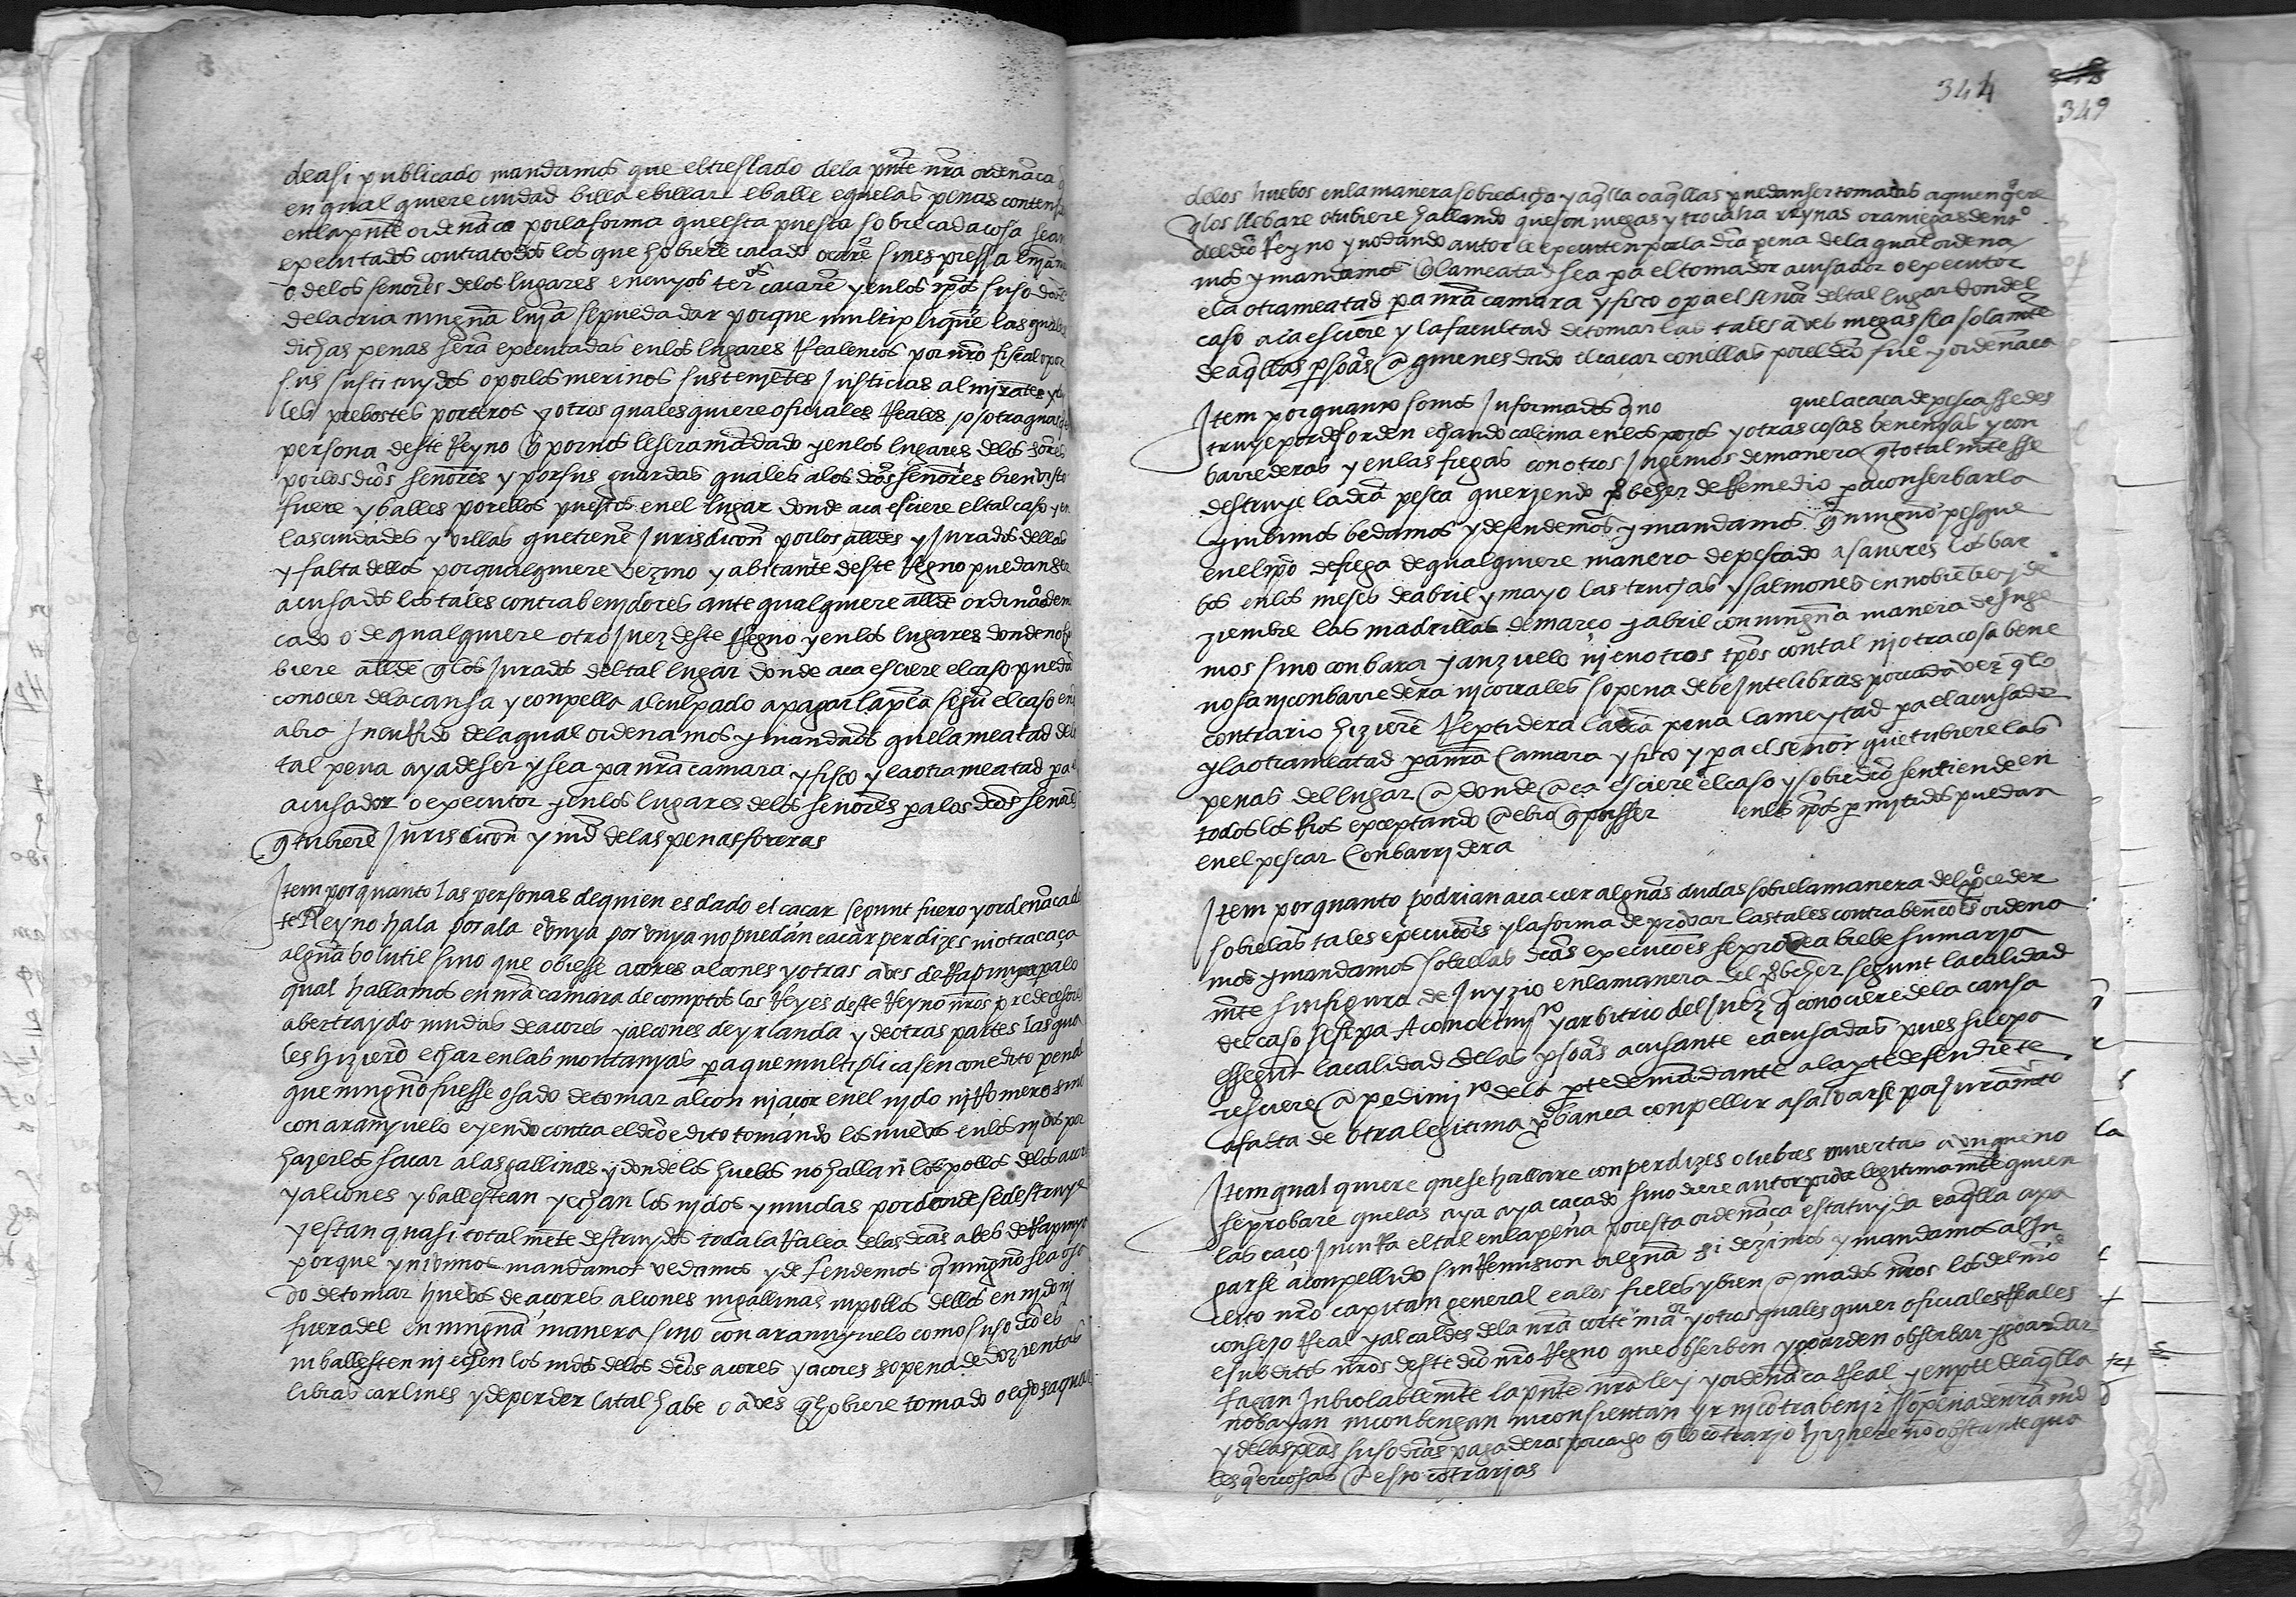 de asi publicado mandamos que el treslado dela pnte nra ordenaca
en qual quiere ciudad billa e billar e balle e quelas penas conten
enla pnte ordenaca por la forma que esta puesta sobre cada cosa sean
executados contra todos los que hobiere cacado ocare sin espressa
o delos senores delos lugares en cuyos ter cacare y en los tpos suso dos
dela cria ninguna lija se pueda dar porque multiplique las quales
dichas penas sera executadas en los lugares Realencos por nro fiscal o por
sus sustituydos o por los merinos sus tenjetes Justicias almirantes
les prebostes porteros y otros quales quiere oficiales Reales o otra qual
persona deste Reyno q por nos les era mandado y en los lugares delos sores
por los dros senores y por sus guardas quales a los dros senores bien visto
fuere y balles por ellos puestos en el lugar donde aca esciere el tal caso y en
las ciudades y villas que tiene Jurisdicion por los alldes y Jurados dellas
y falta dellos por qualquiere vezino y abitante deste Regno puedan ser
acusados los tales contrabenjdores ante qualquiere allde ordinario
cado o de qualquiere otro Juez deste Regno y en los lugares donde no
biere allde q los Jurados del tal lugar donde aca esciere el caso pueda
conocer dela causa y conpella al culpado a pagar la pea segu el caso en
abra Jncurrido dela qual ordenamos y mandamos que la meatad dela
tal pena aya de ser y sea pa nra camara y fisco y la otra meatad pa
acusador o executor y en los lugares delos senores pa los dros senores
q tubiere Jurisdicion y md delas penas foreras
Jtem por quanto las personas de quien es dado el cacar segunt fuero y ordenaca de
te Reyno hala por ala e unya por unya no puedan cacar perdizes ni otra caça
alguna bolutil sino que obiesse acores alcones y otras aves de Rapinya pa lo
qual hallamos en nra camara de comptos los Reyes deste Reyno nros predecesores
aber traydo mudas de acores y alcones de yrlanda y de otras partes las qua
les hiziero echar en las montanyas pa que multiplicasen con edito penal
que ninguno fuesse osado de tomar alcon nj acor en el njdo nj Romero sino
con aranyuelo e yendo contra el dro edito tomando los huebos en los njdos por
hazerlos sacar a las gallinas y donde los huebos no hallan los pollos delos acores
y alcones y ballestean y echan los njdos y mudas por donde se destruye
y estan quasi totalmete destruydos toda la Ralea delas dras abes de Rapinya
porque ynibimos mandamos vedamos y defendemos q ninguno sea osa
do de tomar huebos de açores alcones ni gallinas ni pollos dellos en njdo nj
fuera del en ninguna manera sino con aranyuelo como suso dro es
ni ballesten nj echen los nidos delos dros acores y acores so pena de dozientas
libras carlines y de perder la tal habe o aves q hobiere tomado o echo sacar
344
349
delos huebos en la manera sobre dicha y aqlla o aqllas puedan ser tomadas a quien qere
q los llebare o tubiere hallando que son
del dro Reyno y no dando autor le executen por la dra pena dela qual ordena
mos y mandamos q la meatad sea pa el tomador acusador o executor
e la otra meatad pa nra camara y fisco o pa el senor del tal lugar donde el
caso aca esciere y la facultad de tomar las tales aves megas sea solamte
de aqllas psoas a quienes dado el cacar con ellas por el dro fuero y ordenaca
Jtem por quanto somos Jnformados q no que la caca de pesca se des
truye por desorden echando calcina en los pozos y otras cosas benenosas y con
barrederas y en las fregas con otros Jngenios de manera q totalmte se
destruye la dra pesca queriendo probeher de Remedio pa conserbarla
ynibimos bedamos y defendemos y mandamos q ninguno pesque
en el tpo de frega de qualquiere manera de pescado a saver es los bar
bos en los meses de abril y mayo las truchas y salmones en nobiembre y de
ziembre las madrillas de março y abril con ninguna manera de Jnge
nios sino con bara y anzuelo nj en otros tpos con tal nj otra cosa bene
nosa nj con barredera nj corrales so pena de beJnte libras por cada vez q lo
contrario hiziere Repartidera la dra pena la meytad pa el acusador
y la otra meatad pa nra Camara y fisco y pa el senor que tubiere las
penas del lugar a donde aca esciere el caso y sobre dro se entiende en
todos los Rios exceptando a ebro q posser en los tpos permitidos puedan
en el pescar con barridera
Jtem por quanto podrian aca cer algunas dudas sobre la manera del proceder
sobre las tales execuciones y la forma de probar las tales contrabenciones ordena
mos y mandamos sobre las dras execuciones se probea brebe sumaria
mte sin figura de Juyzio en la manera del probeher segunt la calidad
del caso se sepa A conocimjto y arbitrio del Juez q conociere dela causa
segunt la calidad delas psoas acusante e acusadas pues si expa
resciere a pedimjto dela pte demandante a la pte defendiete
a falta de otra legitima probanca conpellir a salvarse por Juramto
Jtem qual quiere que se hallare con perdizes o liebres muertas aunque no
se probare que las aya aya caçado sino diere autor probar legitimamte quien
las caço Jncurra el tal en la pena por esta ordenaça estatuyda e aqlla a pa
gar se a conpellido sin Remision alguna si dezimos y mandamos al Jn
clito nro capitan general e a los fieles y bien amados nros los del nro
consejo Real y alcaldes dela nra corte mayor y otros quales quier oficiales Reales
e subditos nros deste dro nro Regno que obserben y goarden obserbar y goardar
fagan Jnbiolablemte la pnte nra ley y ordenaca Real y en pte de aqlla
no bayan ni conbengan ni consientan yr nj contrabenjr so pena de nra md
y delas peas suso dras pagaderas por cada q lo contrario hiziere no obstante qua
les qer cosas a esto contrarias